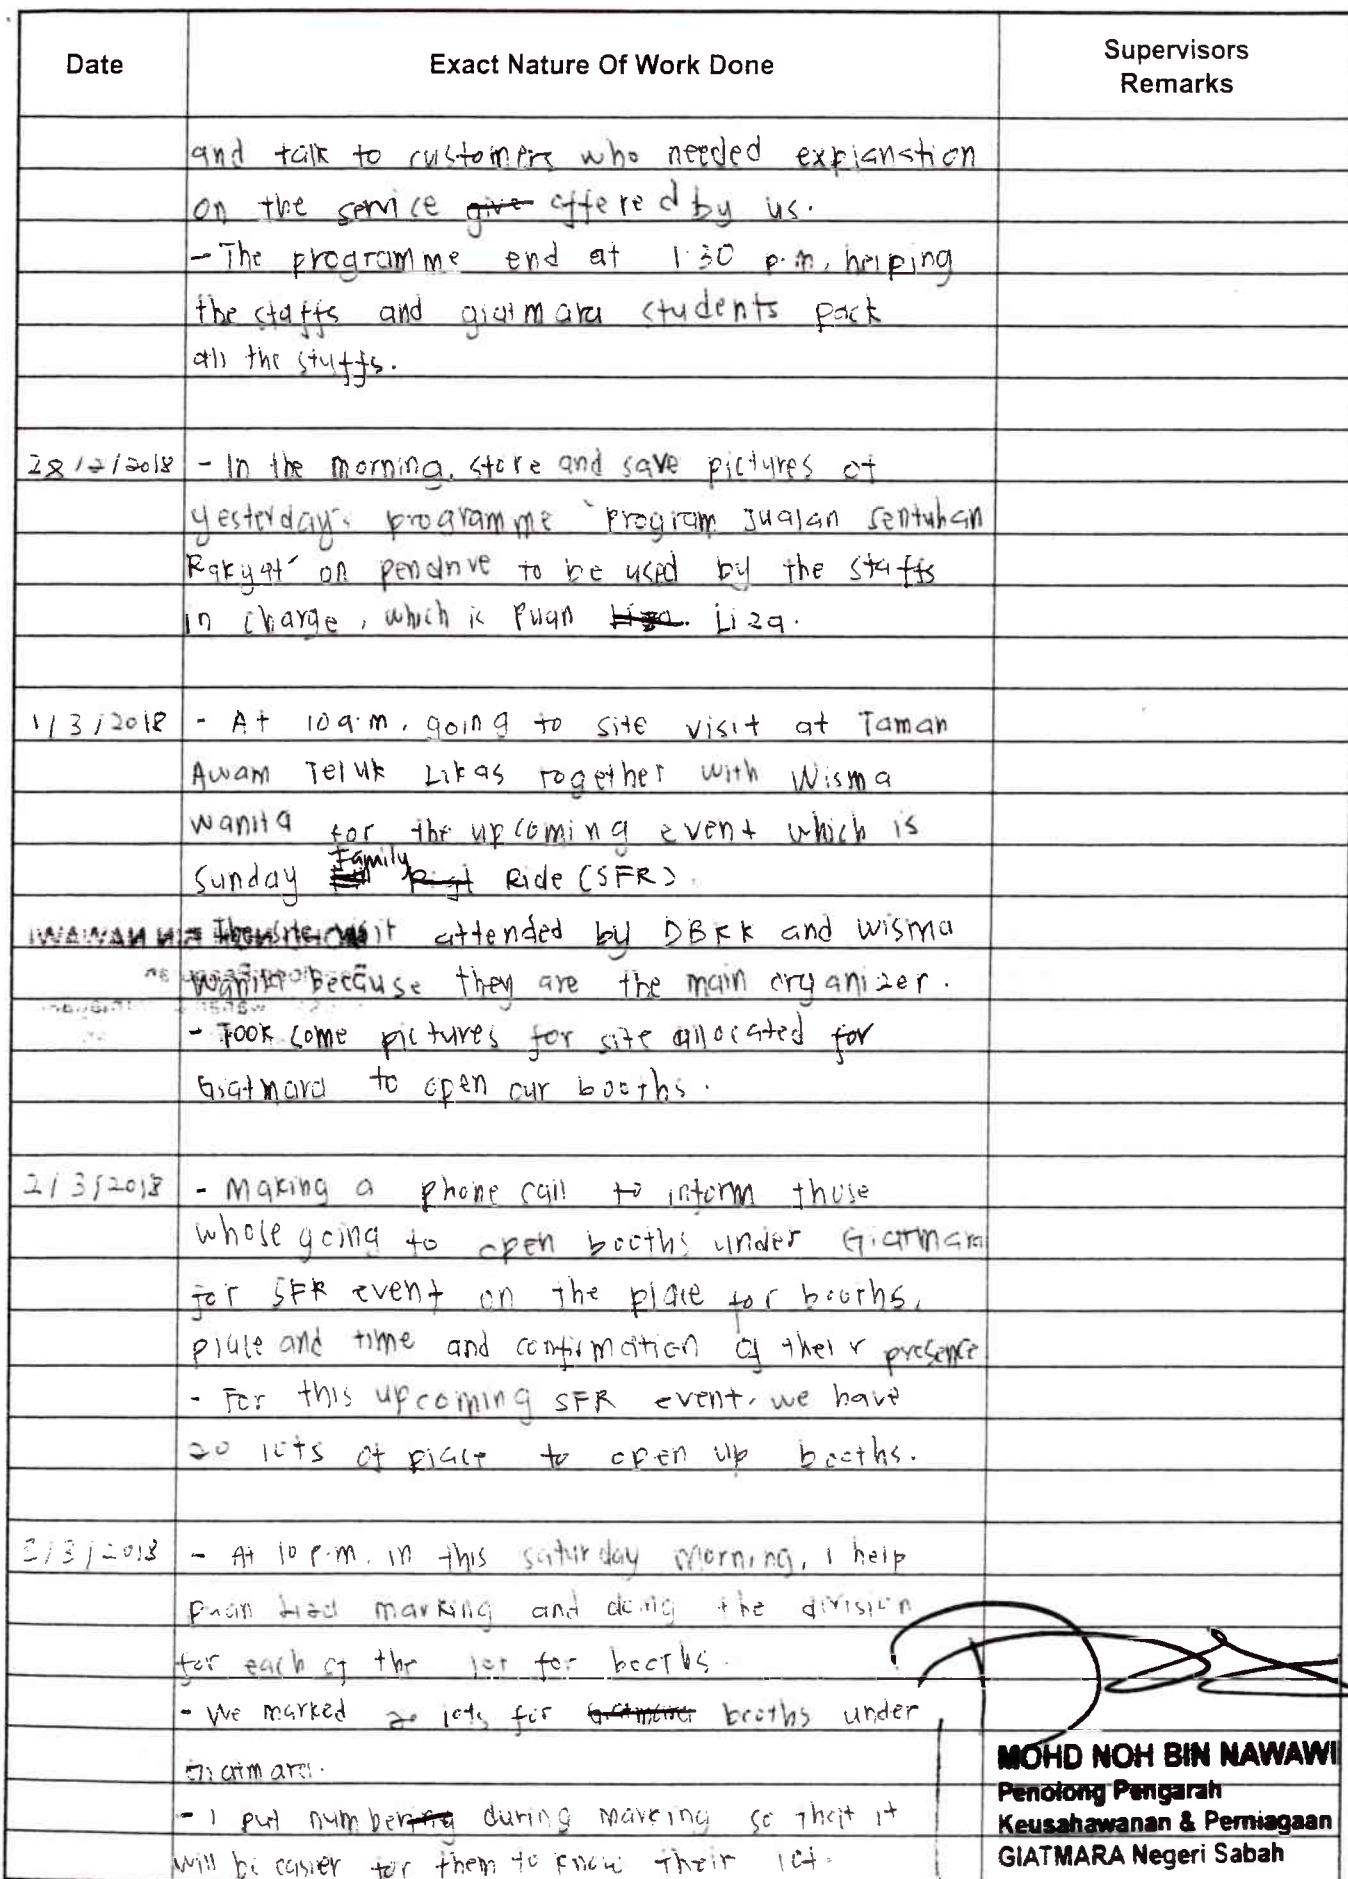 Date
Exact Nature Of Work Done
Supervisors
Remarks
and talk to customers who needed explanation
on the service give offered by us.
- The programme end at 1:30 p.m, helping
the staffs and giatmara students pack
all the stuffs.
28/2/2018 - In the morning, store and save pictures of
yesterday's programme "Program Jualan Sentuhan
Rakyat" on pendrive to be used by the staffs
in charge, which is Puan Liza.
1/3/2018 - At 10 a.m, going to site visit at Taman
Awam Teluk Likas together with Wisma
Wanita for the upcoming event which is
Sunday Family Ride (SFR).
- The site visit attended by DBKK and Wisma
Wanita because they are the main organizer.
- Took some pictures for site allocated for
Giatmara to open our booths.
2/3/2018 - Making a phone call to inform those
whose going to open booths under Giatmara
for SFR event on the place for booths,
place and time and confirmation of their presence
- For this upcoming SFR event, we have
20 lots of place to open up booths.
3/3/2018 - At 10 p.m. in this saturday morning, I help
Puan Liza marking and doing the division
for each of the lot for booths.
- We marked 20 lots for Giatmara booths under
Giatmara.
- I put numbering during marking so that it
will be easier for them to know their lot.
MOHD NOH BIN NAWAWI
Penolong Pengarah
Keusahawanan & Perniagaan
GIATMARA Negeri Sabah